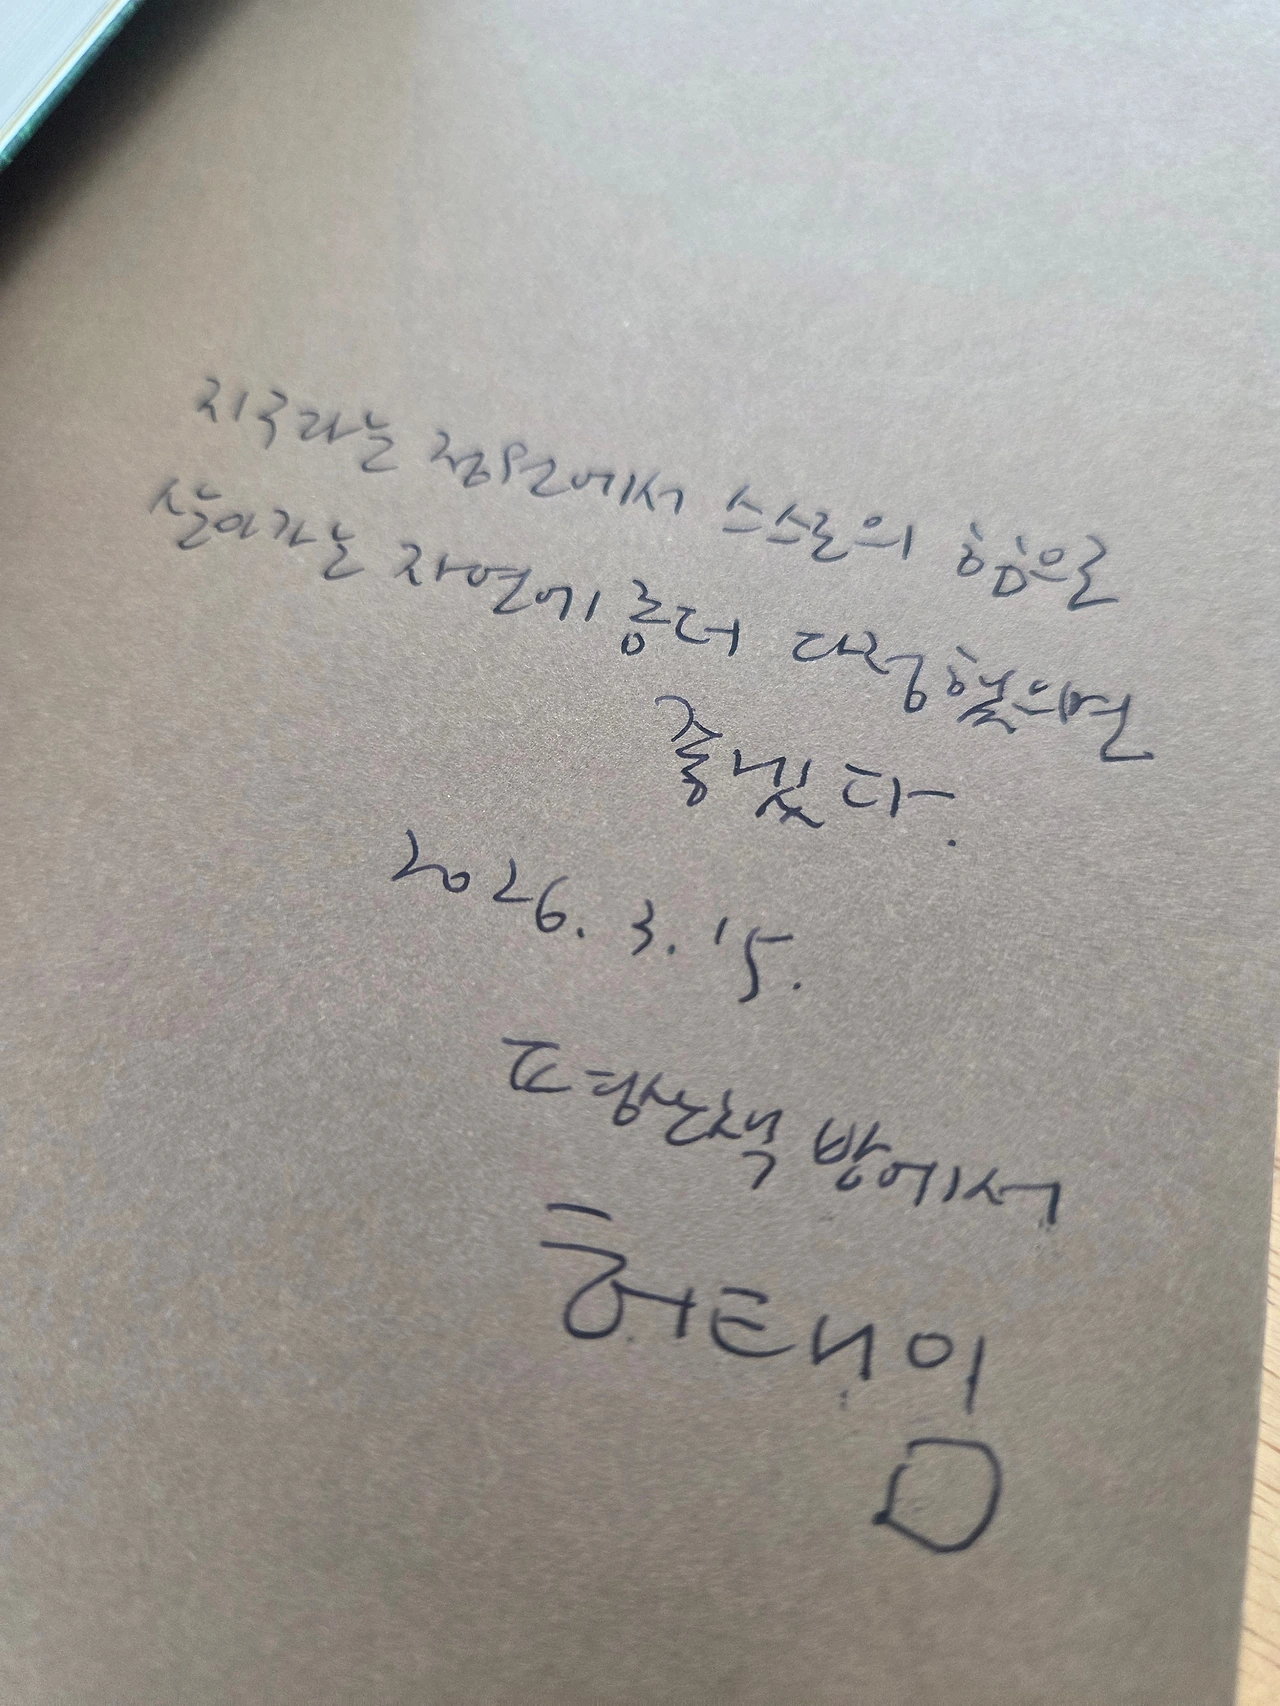 지구라는 정원에서 스스로의 힘으로
살아가는 자연에 룽더 다정했으면
좋겠다.
2026. 3. 15.
고향산책 방에서
허태임